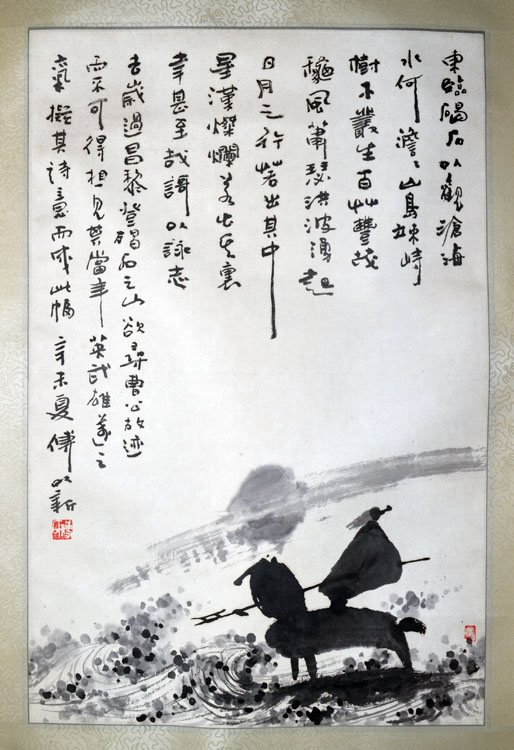 東臨碣石以觀滄海
水何澹〻山島竦峙
樹木叢生百艸豐茂
龝風蕭瑟洪波湧起
日月之行若出其中
星漢燦爛若出其裏
幸甚至哉謌以詠志
去歲過昌黎登碣石之山欲尋曹公故迹
而不可得想見其當年英武雄邁之
氣擬其詩意而成此幅 辛未夏 傅以新